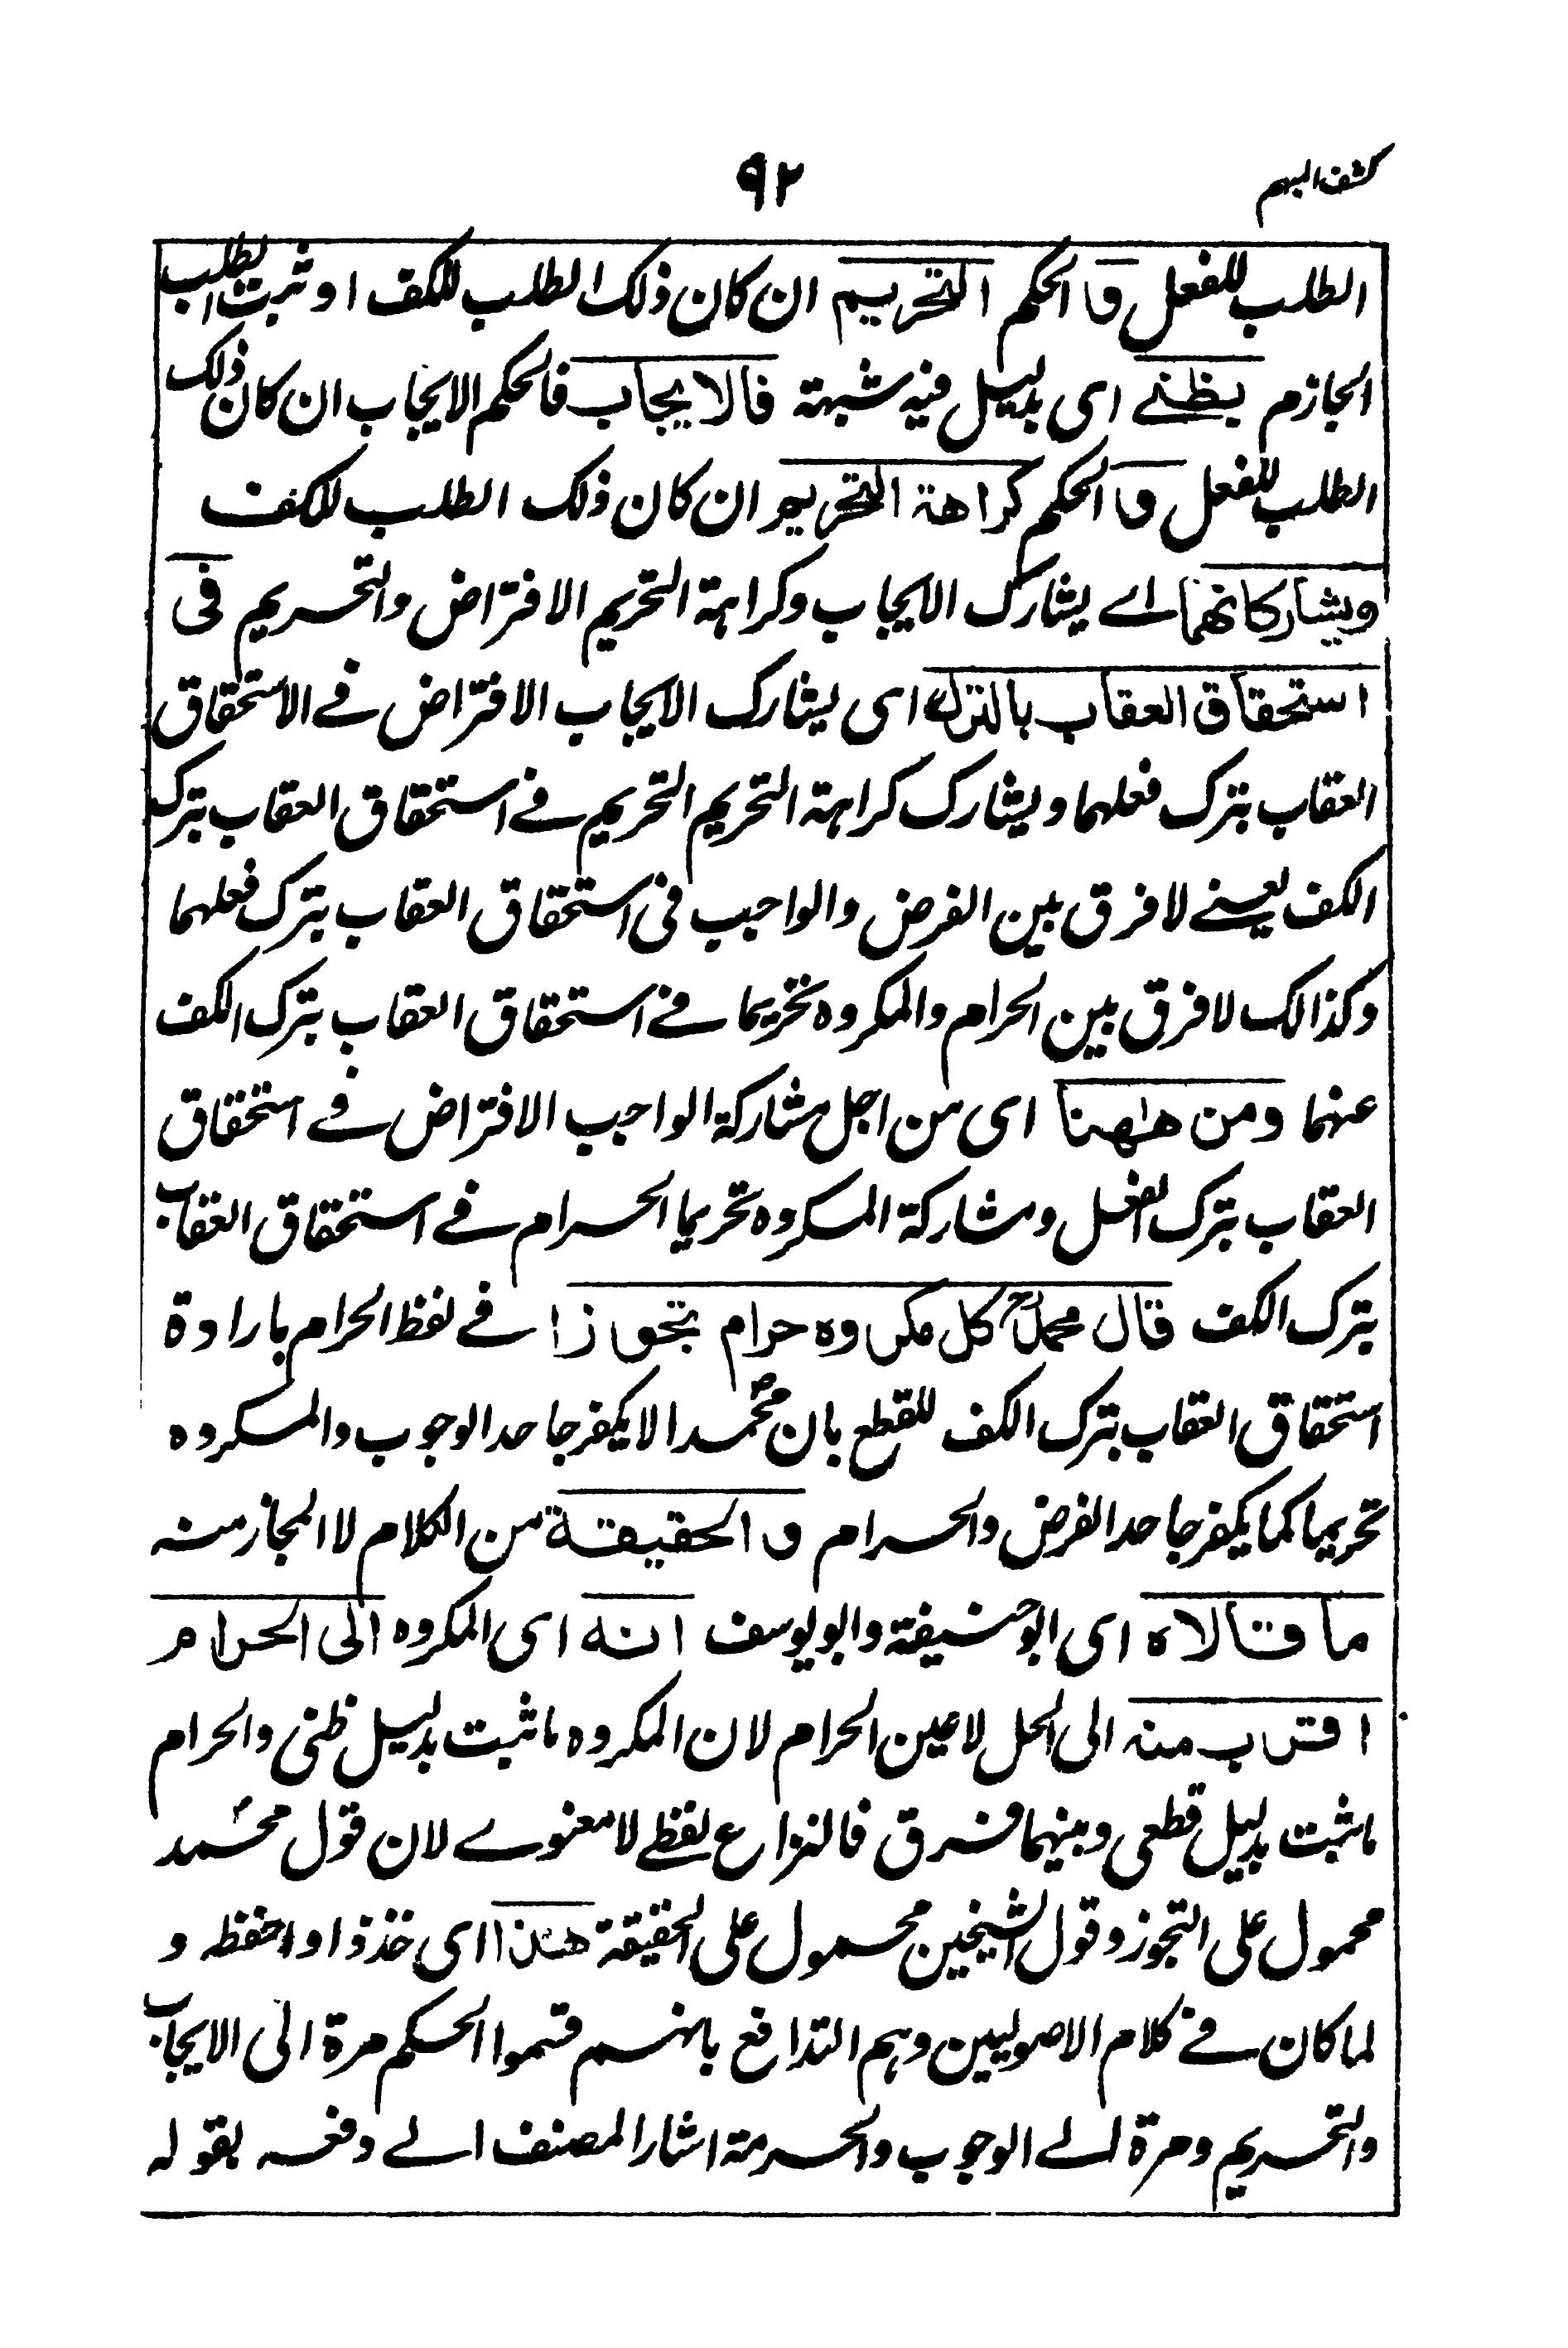 كشف المبهم
٩٢
الطلب للفعل والحكم التحريم ان كان ذلك الطلب للكف او ثبت الطلب
الجازم بظنے اى بدليل فيه شبهة فالايجاب فالحكم الايجاب ان كان ذلك
الطلب للفعل والحكم كراهة التحريم ان كان ذلك الطلب للكف
ويشاركانهما اے يشارك الايجاب وكراهة التحريم الافتراض والتحريم فى
استحقاق العقاب بالترك اى يشارك الايجاب الافتراض فے الاستحقاق
العقاب بترك فعلهما ويشارك كراهة التحريم التحريم فے استحقاق العقاب بترك
الكف يعنے لا فرق بين الفرض والواجب فى استحقاق العقاب بترك فعلهما
وكذالك لا فرق بين الحرام والمكروه تحريما فے استحقاق العقاب بترك الكف
عنهما ومن ههنا اى من اجل مشاركة الواجب الافتراض فے استحقاق
العقاب بترك الفعل ومشاركة المكروه تحريما الحرام فے استحقاق العقاب
بترك الكف قال محمدؒ كل مكروه حرام تجوزا فے لفظ الحرام بارادة
استحقاق العقاب بترك الكف للقطع بان محمدا لا يكفر جاحد الوجوب والمكروه
تحريما كما يكفر جاحد الفرض والحرام والحقيقة من الكلام لا المجاز منه
ما قالاه اى ابو حنيفة وابو يوسف انه اى المكروه الى الحرام
اقرب منه الى الحل لا عين الحرام لان المكروه ما ثبت بدليل ظنى والحرام
ما ثبت بدليل قطعى وبينهما فرق فالنزاع لفظے لا معنوے لان قول محمد
محمول على التجوز وقول الشيخين محمول على الحقيقة هذا اى خذ ذا واحفظه و
لما كان فے كلام الاصوليين وهم التدافع بانهم قسموا الحكم مرة الى الايجاب
والتحريم ومرة الے الوجوب والحرمة اشار المصنف الے دفعه بقوله